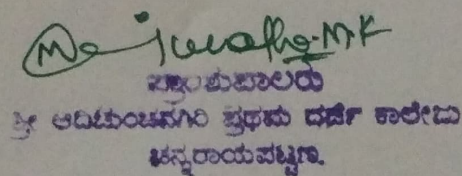 M.K
ಪ್ರಾಂಶುಪಾಲರು
ಶ್ರೀ ಆದಿಚುಂಚನಗಿರಿ ಪ್ರಥಮ ದರ್ಜೆ ಕಾಲೇಜು
ಚನ್ನರಾಯಪಟ್ಟಣ.